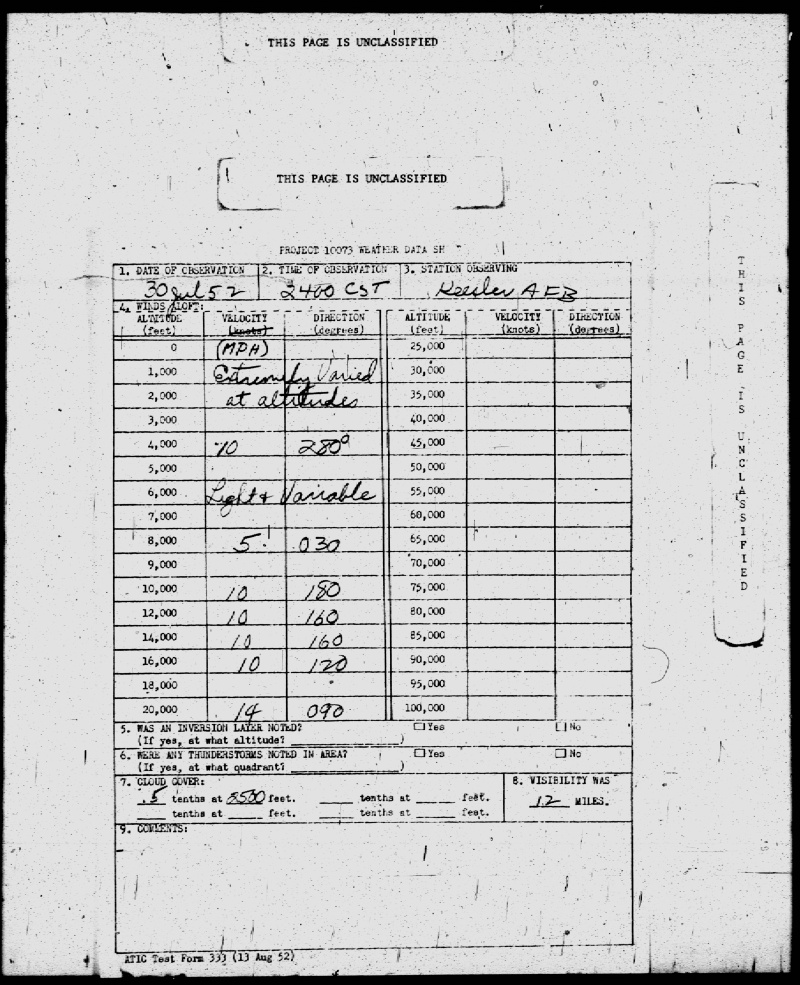 THIS PAGE IS UNCLASSIFIED
THIS PAGE IS UNCLASSIFIED
PROJECT 10073 WEATHER DATA SH
1. DATE OF OBSERVATION 2. TIME OF OBSERVATION 3. STATION OBSERVING
30 Jul 52 2400 CST Keesler AFB
4. WINDS ALOFT:
ALTITUDE VELOCITY DIRECTION ALTITUDE VELOCITY DIRECTION
(feet) (knots) (degrees) (feet) (knots) (degrees)
0 (MPH) 25,000
1,000 Extremely Varied 30,000
2,000 at altitudes 35,000
3,000 40,000
4,000 10 280° 45,000
5,000 50,000
6,000 Light + Variable 55,000
7,000 60,000
8,000 5 030 65,000
9,000 70,000
10,000 10 180 75,000
12,000 10 160 80,000
14,000 10 160 85,000
16,000 10 120 90,000
18,000 95,000
20,000 14 090 100,000
5. WAS AN INVERSION LAYER NOTED? Yes No
(If yes, at what altitude? )
6. WERE ANY THUNDERSTORMS NOTED IN AREA? Yes No
(If yes, at what quadrant? )
7. CLOUD COVER: 8. VISIBILITY WAS
.5 tenths at 8500 feet. tenths at feet. 12 MILES.
tenths at feet. tenths at feet.
9. COMMENTS:
ATIC Test Form 333 (13 Aug 52)
THIS PAGE IS UNCLASSIFIED